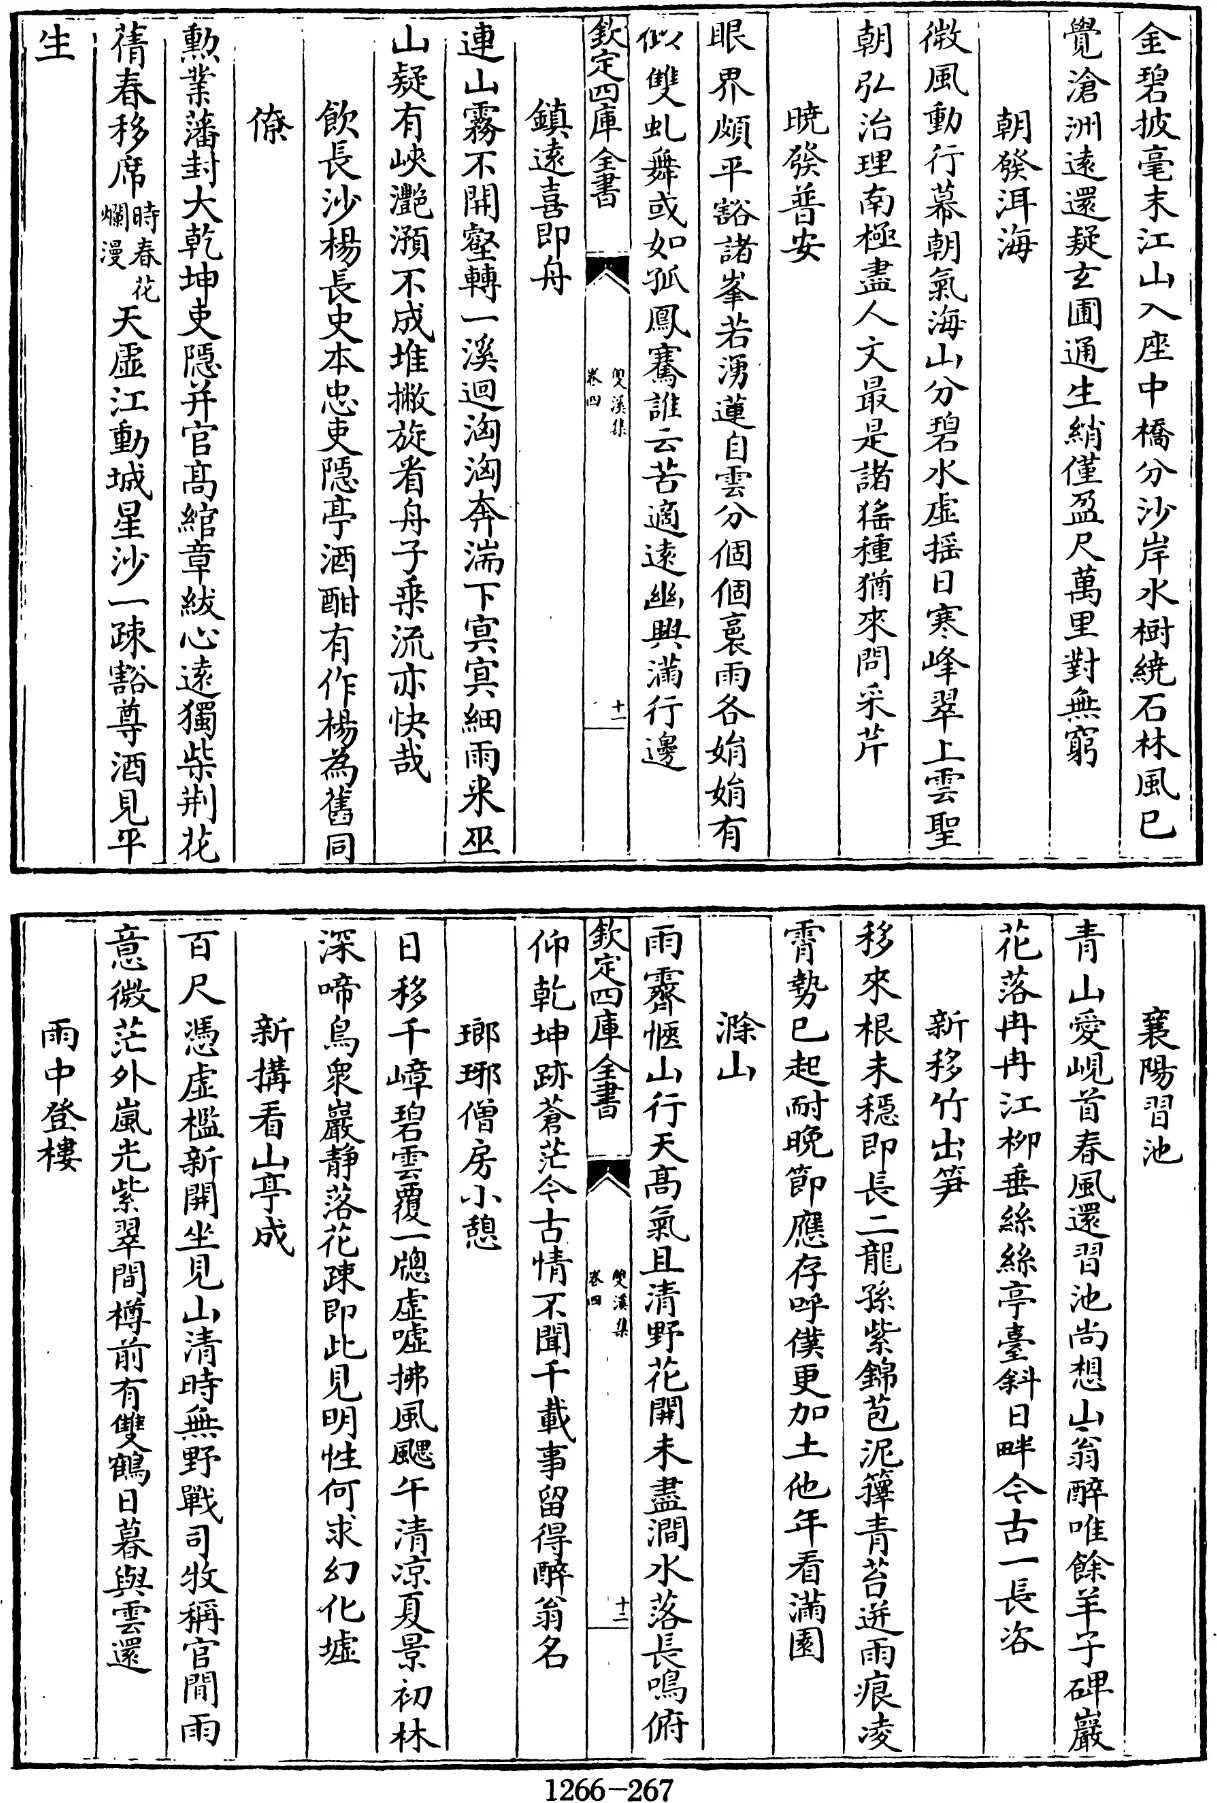 金碧披毫末江山入座中橋分沙岸水樹繞石林風已
覺滄洲遠還疑玄圃通生綃僅盈尺萬里對無窮
朝發洱海
微風動行幕朝氣海山分碧水虛摇日寒峰翠上雲聖
朝弘治理南極盡人文最是諸猺種猶來問采芹
曉發普安
眼界頗平豁諸峯若湧蓮自雲分個個裛雨各娟娟有
似雙虬舞或如孤鳳騫誰云苦適遠幽興滿行邊
欽定四庫全書
雙溪集
卷四
十一
鎮遠喜即舟
連山霧不開壑轉一溪迴洶洶奔湍下寞寞細雨來巫
山疑有峽灔澦不成堆撇旋看舟子乗流亦快哉
飲長沙楊長史本忠吏隠亭酒酣有作楊為舊同
僚
勲業藩封大乾坤吏隠并官髙綰章紱心遠獨柴荆花
蒨春移席時春花爛漫天虛江動城星沙一疎豁尊酒見平
生
襄陽習池
青山愛峴首春風還習池尚想山翁醉唯餘羊子碑巖
花落冉冉江柳垂絲絲亭臺斜日畔今古一長咨
新移竹出笋
移來根未穩即長二龍孫紫錦苞泥籜青苔迸雨痕凌
霄勢已起耐晚節應存呼僕更加土他年看滿園
滁山
雨霽愜山行天髙氣且清野花開未盡澗水落長鳴俯
欽定四庫全書
雙溪集
卷四
十二
仰乾坤跡蒼茫今古情不聞千載事留得醉翁名
瑯琊僧房小憩
日移千嶂碧雲覆一牕虛噓拂風颸午清凉夏景初林
深啼鳥衆巖靜落花疎即此見明性何求幻化墟
新搆看山亭成
百尺憑虛檻新開坐見山清時無野戰司牧稱官閒雨
意微茫外嵐光紫翠間樽前有雙鶴日暮與雲還
雨中登樓
1266-267